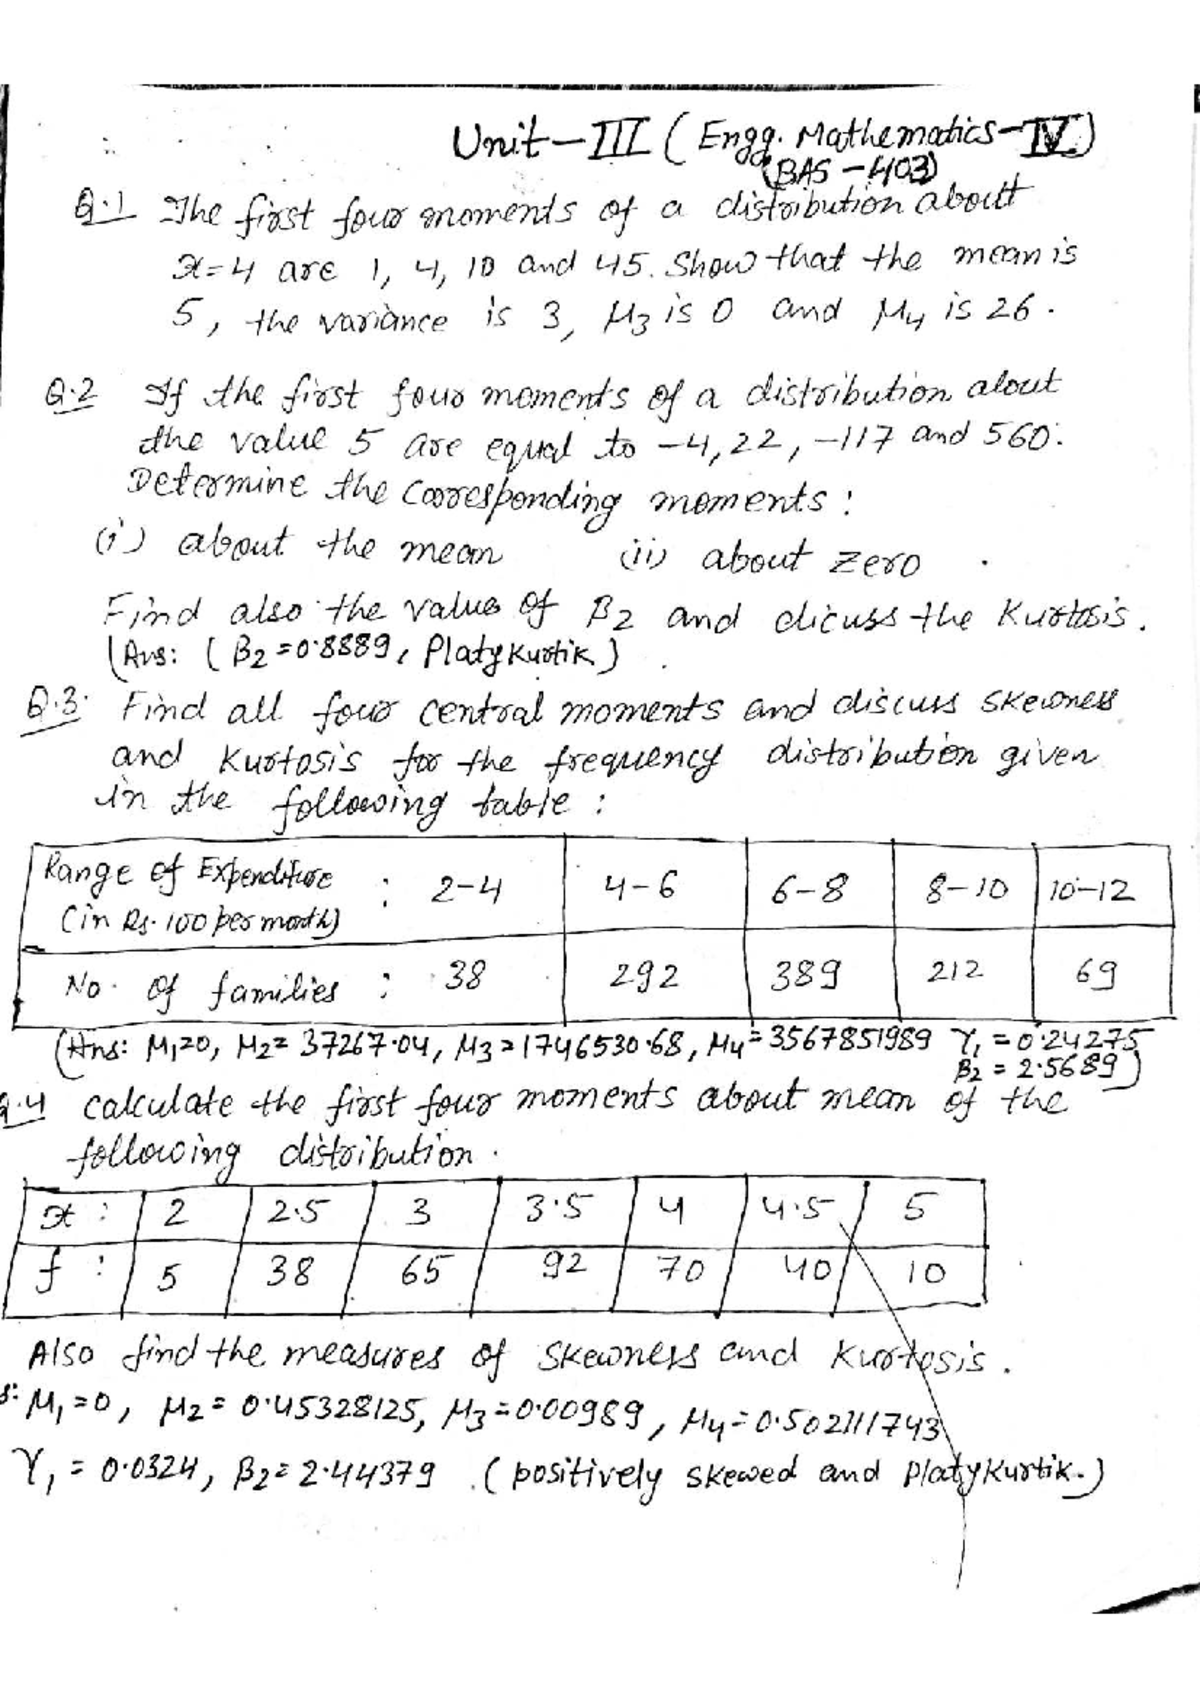 Unit-III (Engg. Mathematics-IV)
(BAS-403)
Q.1 The first four moments of a distribution about
x=4 are 1, 4, 10 and 45. Show that the mean is
5, the variance is 3, μ3 is 0 and μ4 is 26.
Q.2 If the first four moments of a distribution about
the value 5 are equal to -4, 22, -117 and 560.
Determine the corresponding moments:
(i) about the mean (ii) about zero
Find also the value of β2 and dicuss the Kurtosis.
(Ans: (β2=0.8889, Platykurtik)
Q.3. Find all four central moments and discuss skewness
and Kurtosis for the frequency distribution given
in the following table:
Range of Expenditure : 2-4 4-6 6-8 8-10 10-12
(in Rs. 100 per month)
No. of families : 38 292 389 212 69
(Ans: μ1=0, μ2= 37267.04, μ3=1746530.68, μ4=3567851989 γ1=0.24275
β2 = 2.5689)
Q.4 Calculate the first four moments about mean of the
following distribution.
x: 2 2.5 3 3.5 4 4.5 5
f: 5 38 65 92 70 40 10
Also find the measures of skewness and Kurtosis.
s: μ1=0, μ2= 0.45328125, μ3=0.00989, μ4=0.502111743
γ1 = 0.0324, β2= 2.44379 .(positively skewed and Platykurtik.)